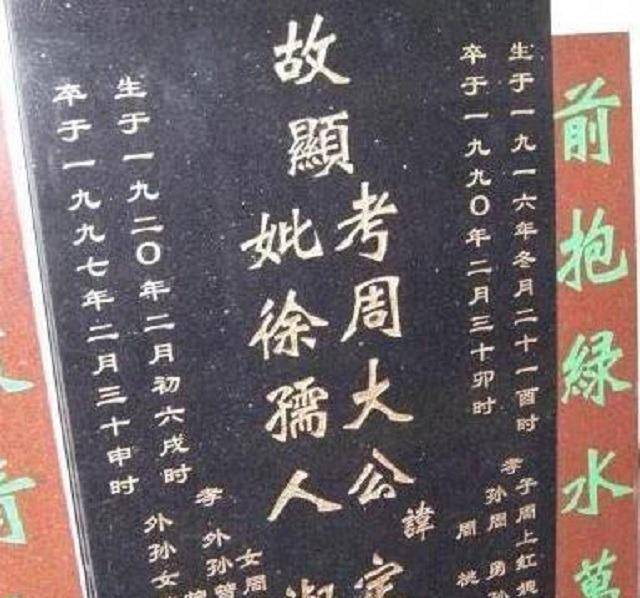 前抱绿水萬
生于一九一六年冬月二十一酉时
卒于一九九〇年二月三十卯时
孝子周上红
孙周勇孙
周
故顯
考周大公諱定
妣徐孺人淑
生于一九二〇年二月初六戌时
卒于一九九七年二月三十申时
孝女周
外孙曾
外孙女